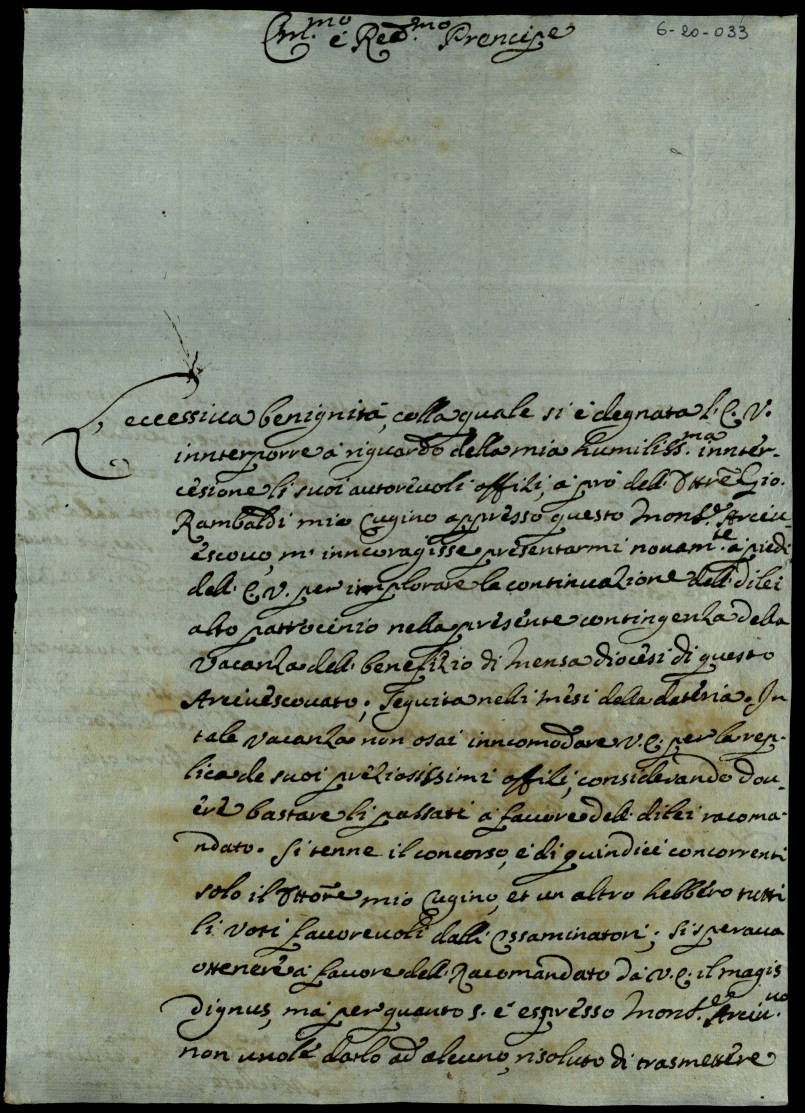 6-20-033
Em.mo è Red.mo Prencipe
L eccessiua benignità, colla quale si è degnata l'E. V.
innterporre à riguardo della mia humiliss.ma innter-
cesione li suoi autoreuoli offizi, à prò dell' Dttrē Gio.
Rambaldi mio Cugino appresso questo Mons.re Arciu-
escouo, m' inncoragisse presentarmi nouam.te à piedi
dell' E. V. per implorare la continuazione dell' di lei
alto patrocinio nella presente contingenza della
Vacanza dell' benefizio di Mensa diocesi di questo
Arciuescouato; Seguita nelli mesi della dateria. In
tale vacanza non osai inncomodare V. E. per la rep-
lica de suoi preziosissimi offizi, considerando dou-
ere bastare li passati à fauore dell' di lei racoma-
ndato. Si tenne il concorso, e di quindici concorrenti
solo il Dttorē mio Cugino, et un altro hebbero tutti
li voti fauoreuoli dalli Essaminatori; Si speraua
ottenere à fauore dell' Racomandato da V. E. il magis
dignus, mà per quanto s' è espresso Mons.re Arciu.uo
non vuole darlo ad alcuno, risoluto di trasmettere